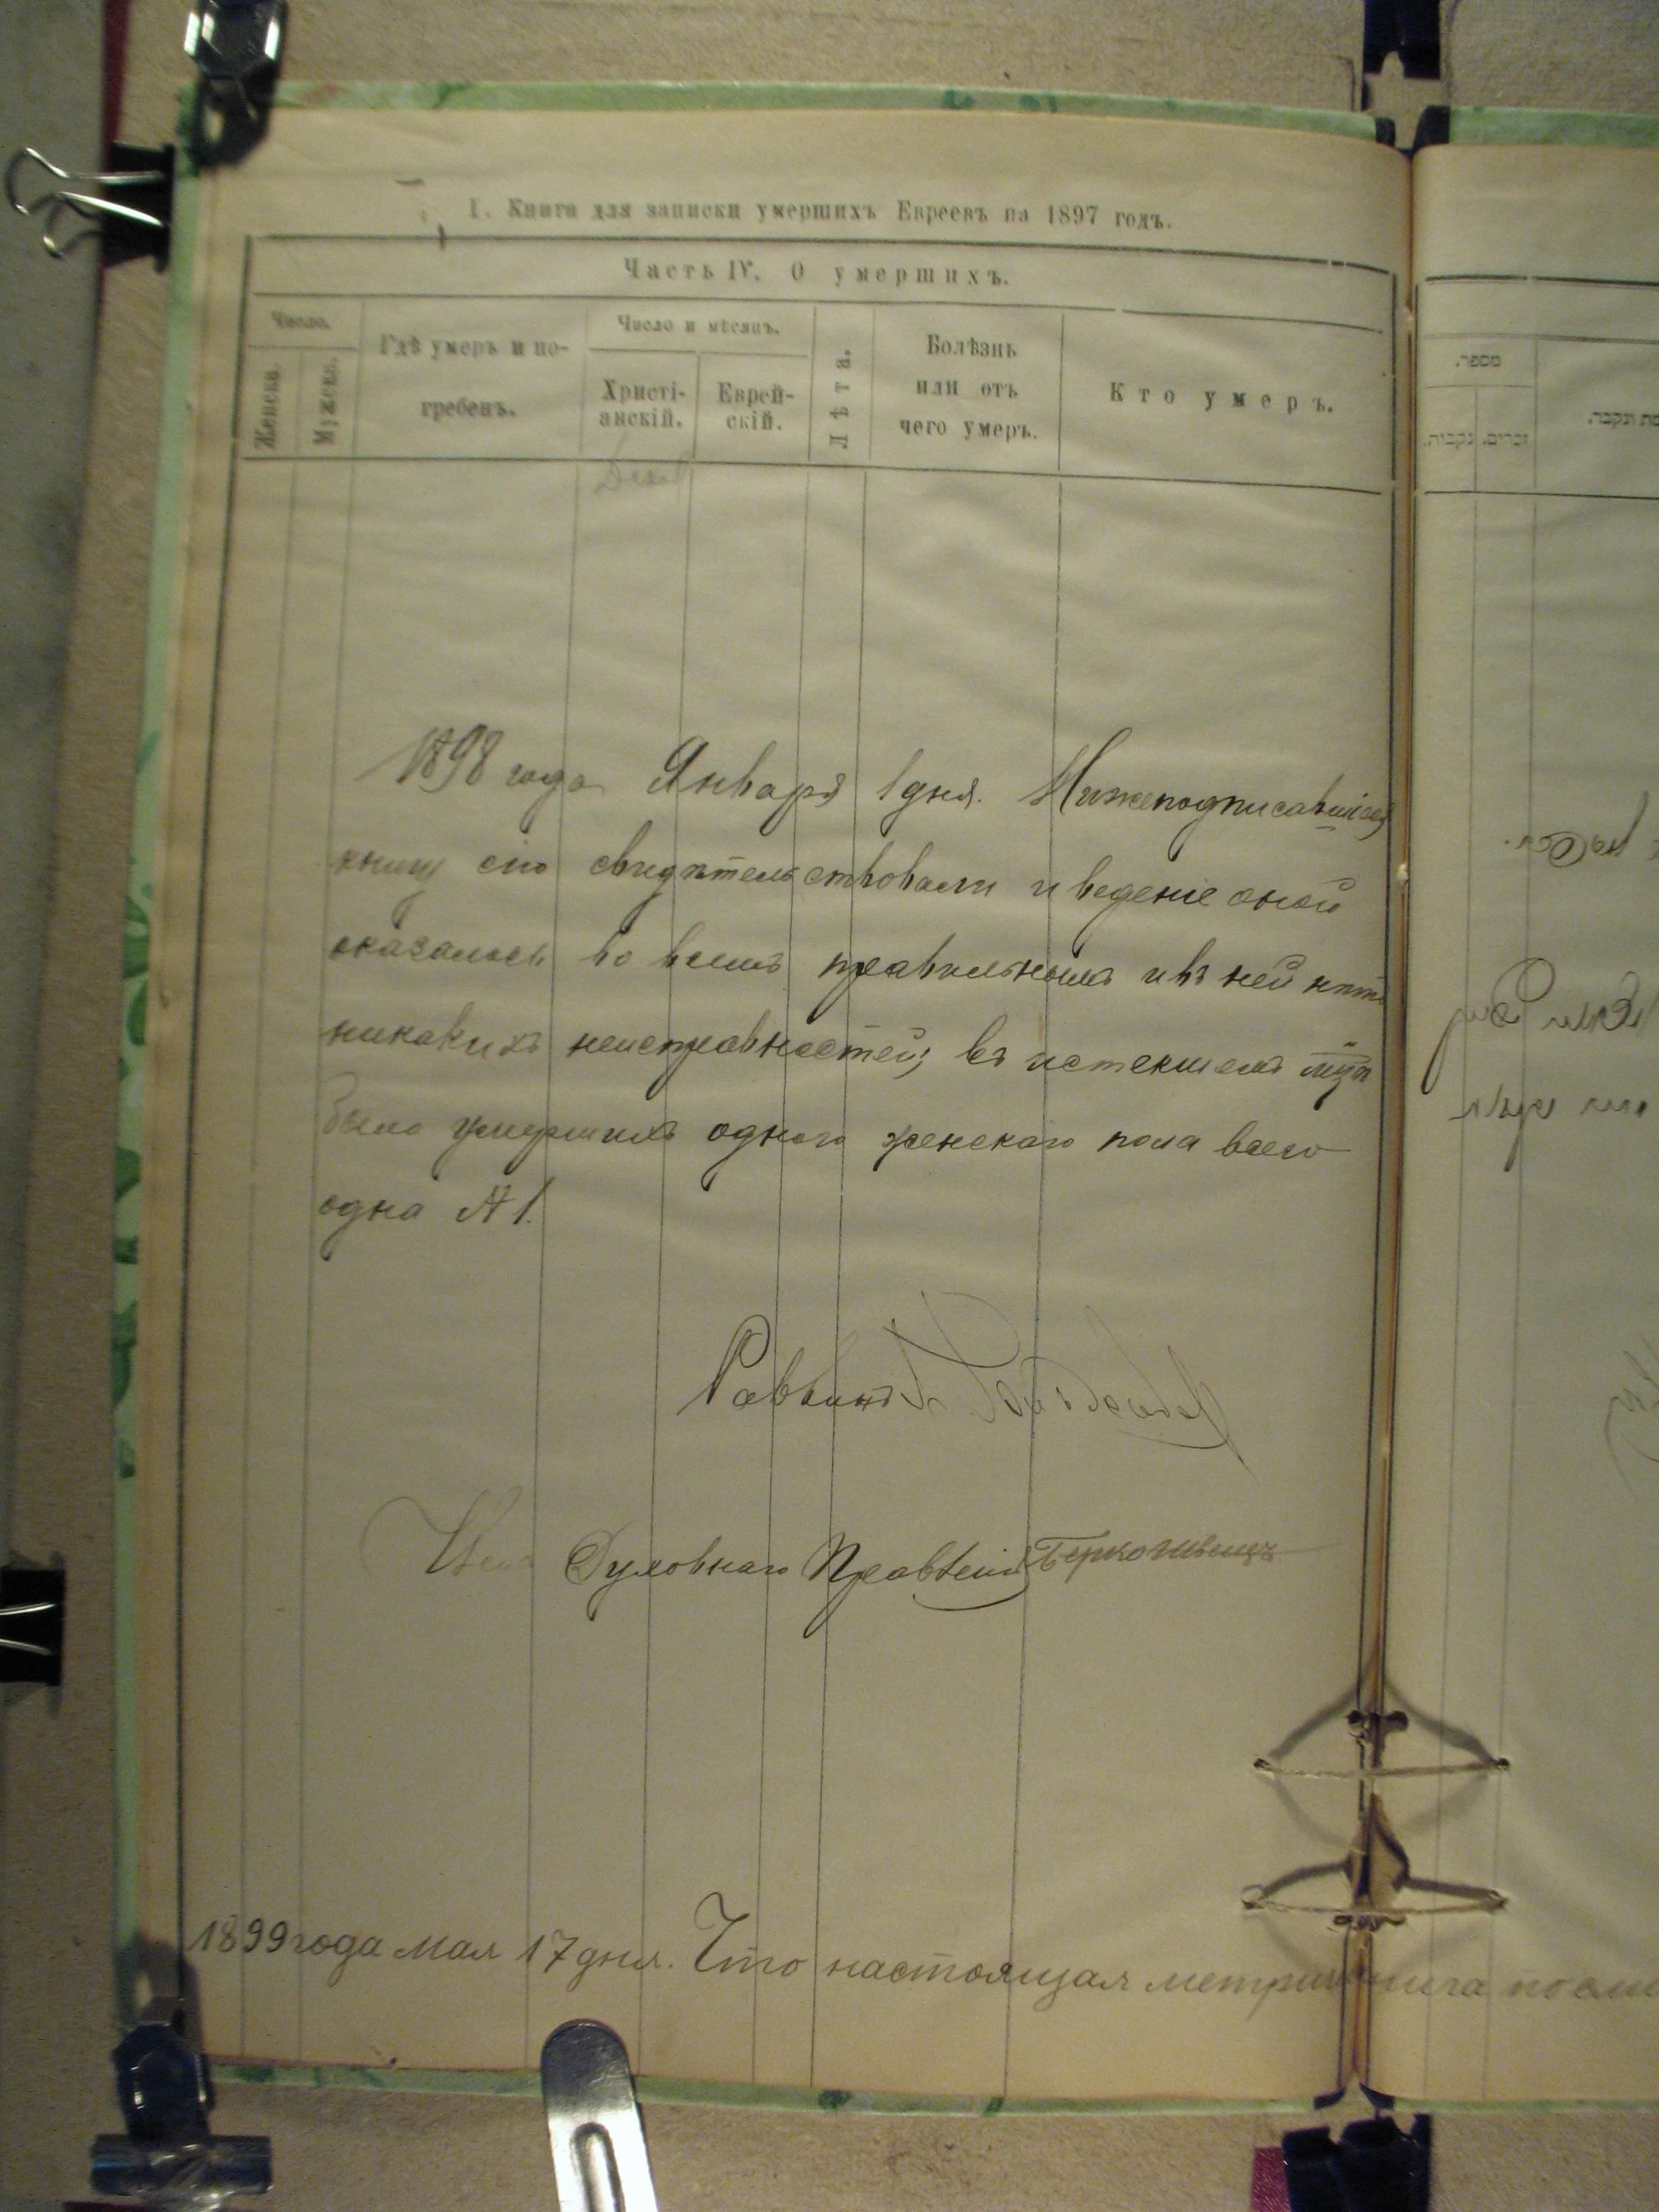 I. Книга для записки умершихъ Евреевъ на 1897 годъ.
Часть IV. О умершихъ.
Число.
Женска.
Мужска.
Гдѣ умеръ и по-
гребенъ.
Число и мѣсяцъ.
Христі-
анскій.
Еврей-
скій.
Лѣта.
Болѣзнь
или отъ
чего умеръ.
Кто умеръ.
1898 года Января 1 дня. Нижеподписавшіеся
книгу сію свидѣтельствовали и веденіе оной
оказалось во всемъ правильнымъ и въ ней нѣтъ
никакихъ неисправностей; въ истекшемъ
было умершихъ одного женскаго пола всего
одна №1.
Раввинъ
Духовнаго Правленія
1899 года мая 17 дня. Что настоящая
מספר.
זכרים.
נקבות.